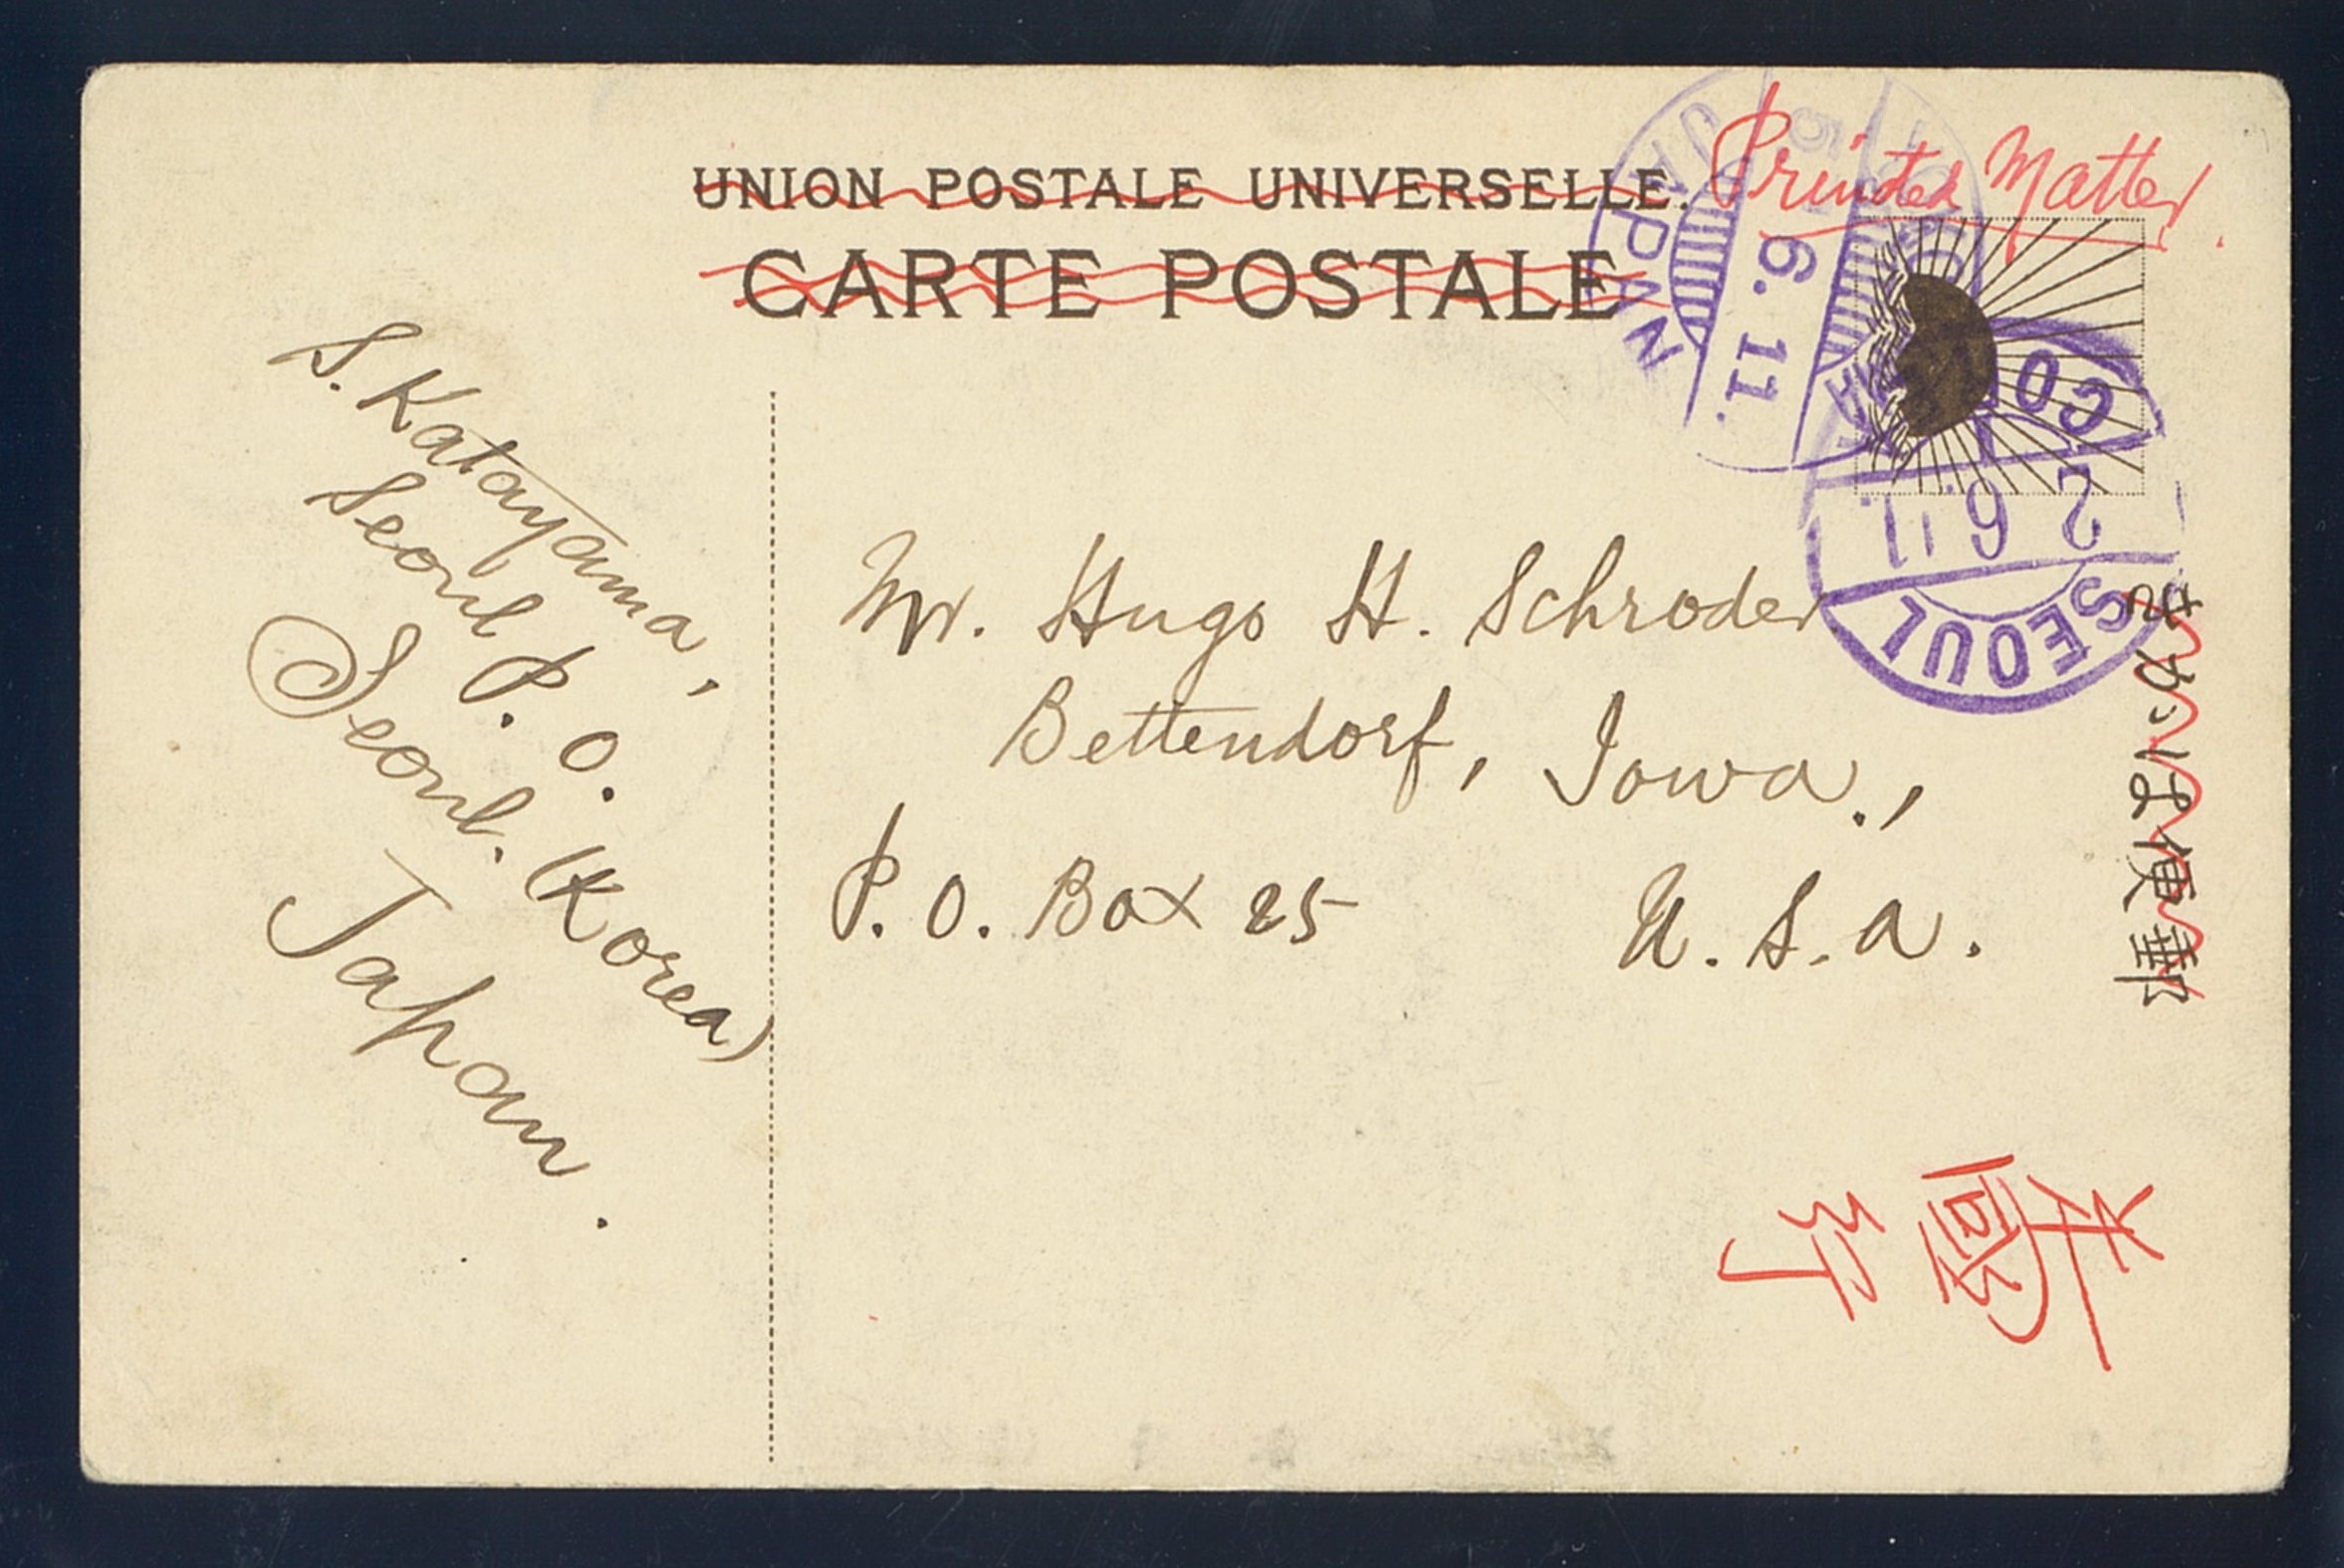 UNION POSTALE UNIVERSELLE.
CARTE POSTALE
Printed Matter
JAPAN
6. 11.
2 6 11.
SEOUL
きがは便郵
S. Katayama,
Seoul P. O.
Seoul. (Korea)
Japan.
Mr. Hugo H. Schroder
Bettendorf, Iowa.,
P. O. Box 25
U. S. A.